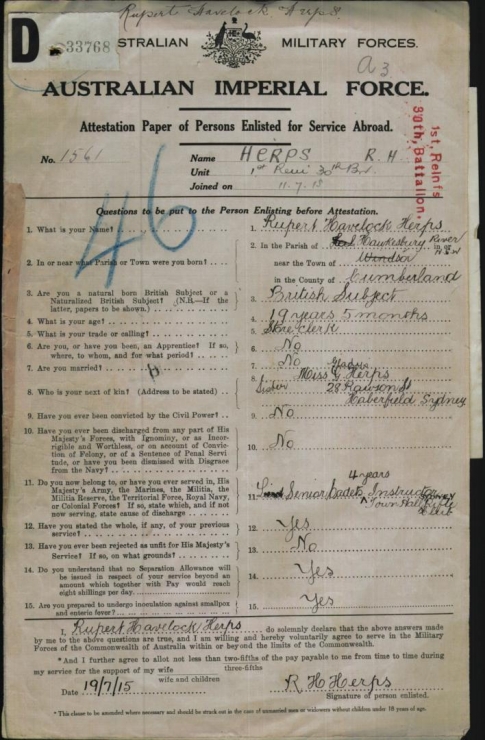 Rupert Havelock Herps
D
33768
AUSTRALIAN MILITARY FORCES.
A3
AUSTRALIAN IMPERIAL FORCE.
Attestation Paper of Persons Enlisted for Service Abroad.
1st. Reinfs
30th, Battalion.
No. 1561 Name HERPS R. H.
Unit 1st Rein 30th Bn.
Joined on 11.7.15
46
Questions to be put to the Person Enlisting before Attestation.
1. What is your Name? 1. Rupert Havelock Herps
2. In or near what Parish or Town were you born? 2. In the Parish of Hawkesbury River
near the Town of Windsor in or N.S.W
in the County of Cumberland
3. Are you a natural born British Subject or a
Naturalized British Subject? (N.B.—If the
latter, papers to be shown.) 3. British Subject
4. What is your age? 4. 19 years 5 months
5. What is your trade or calling? 5. Clerk
6. Are you, or have you been, an Apprentice? If so,
where, to whom, and for what period? 6. No
7. Are you married? 7. No
8. Who is your next of kin? (Address to be stated) 8. Sister Miss G Herps
28 Dawson St
Haberfield Sydney
9. Have you ever been convicted by the Civil Power? 9. No
10. Have you ever been discharged from any part of His
Majesty's Forces, with Ignominy, or as Incor-
rigible and Worthless, or on account of Convic-
tion of Felony, or of a Sentence of Penal Servi-
tude, or have you been dismissed with Disgrace
from the Navy? 10. No
11. Do you now belong to, or have you ever served in, His
Majesty's Army, the Marines, the Militia, the
Militia Reserve, the Territorial Force, Royal Navy,
or Colonial Forces? If so, state which, and if not
now serving, state cause of discharge 11. Senior Cadets 4 years Instructor
Town Hall
12. Have you stated the whole, if any, of your previous
service? 12. Yes
13. Have you ever been rejected as unfit for His Majesty's
Service? If so, on what grounds? 13. No
14. Do you understand that no Separation Allowance will
be issued in respect of your service beyond an
amount which together with Pay would reach
eight shillings per day 14. Yes
15. Are you prepared to undergo inoculation against smallpox
and enteric fever? 15. Yes
I, Rupert Havelock Herps do solemnly declare that the above answers made
by me to the above questions are true, and I am willing and hereby voluntarily agree to serve in the Military
Forces of the Commonwealth of Australia within or beyond the limits of the Commonwealth.
*And I further agree to allot not less than two-fifths of the pay payable to me from time to time during
three-fifths
my service for the support of my wife
wife and children
Date 19/7/15 R H Herps
Signature of person enlisted.
* This clause to be amended where necessary and should be struck out in the case of unmarried men or widowers without children under 18 years of age.